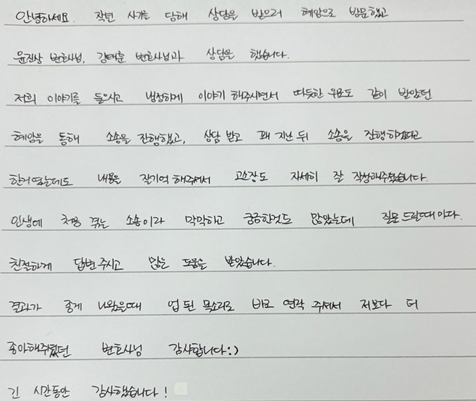 안녕하세요. 작년 사기를 당해 상담을 받으러 혜암으로 방문했고
윤진상 변호사님, 강태훈 변호사님과 상담을 했습니다.
저희 이야기를 들으시고 냉정하게 이야기 해주시면서 따듯한 위로도 같이 받았던
혜암을 통해 소송을 진행했고, 상담 받고 꽤 지난 뒤 소송을 진행하겠다고
한거였는데도 내용을 잘기억 해주셔서 고소장도 자세히 잘 작성해주셨습니다.
인생에 처음 겪는 소송이라 막막하고 궁금한것도 많았는데 질문 드릴때마다.
친절하게 답변 주시고 많은 도움을 받았습니다.
결과가 좋게 나왔을때 업 된 목소리로 바로 연락 주셔서 저보다 더
좋아해주셨던 변호사님 감사합니다:)
긴 시간동안 감사했습니다!